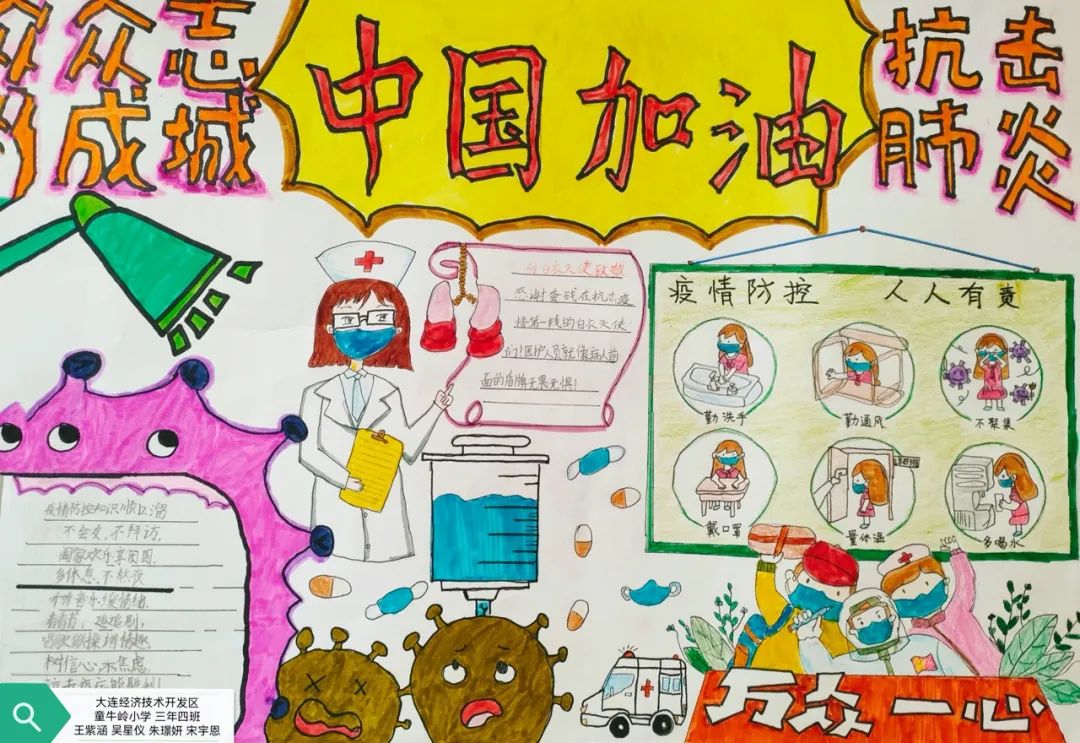 众志
成城
中国加油
抗击
肺炎
白衣天使致敬
感谢奋战在抗击疫
情第一线的白衣天使
们!医护人员就像病人前
面的盾牌无畏无惧!
疫情防控 人人有责
勤洗手
勤通风
不聚集
戴口罩
量体温
多喝水
疫情防控知识顺口溜
不会友,不拜访,
阖家欢乐享团圆.
多休息,不熬夜
听听音乐缓情绪.
看看书,追追剧,
树信心,不焦虑
万众一心
大连经济技术开发区
童牛岭小学 三年四班
王紫涵 吴星仪 朱璟妍 宋宇恩